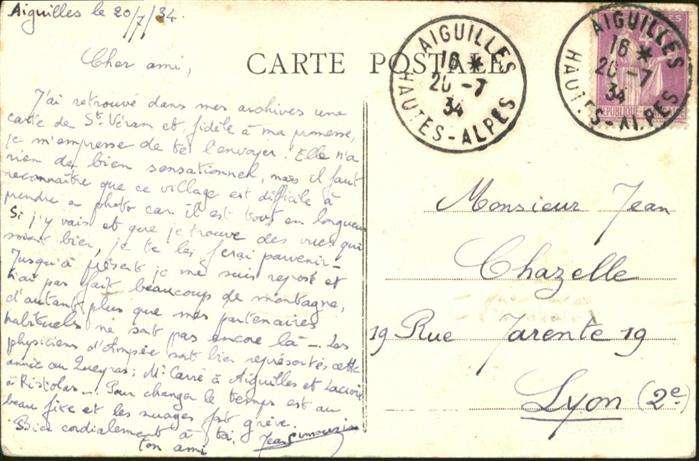 Aiguilles le 20/7/34.
CARTE POSTALE
AIGUILLES
16 *
20 -7
34
HAUTES-ALPES
AIGUILLES
16 *
20 -7
34
HAUTES-ALPES
Cher ami,
J'ai retrouvé dans mes archives une
carte de St Véran et fidèle à ma promesse,
je m'empresse de te l'envoyer. Elle n'a
rien de bien sensationnel, mais il faut
reconnaître que ce village est difficile à
prendre en photo car il est tout en longueur
Si j'y vais et que je trouve des vues qui
soient bien, je te les ferai parvenir -
Jusqu'à présent je me suis reposé et
n'ai pas fait beaucoup de montagne,
d'autant plus que mes partenaires
habituels ne sont pas encore là -. Les
physiciens d'Ampère sont bien représentés cette
année au Queyras: Mr Carré à Aiguilles et Lacroix
à Ristolas -. Pour changer le temps est au
beau fixe et les nuages font grève.
Bien cordialement à toi.
ton ami Jean
Monsieur Jean
Chazelle
19 Rue Tarente 19
Lyon (2e)